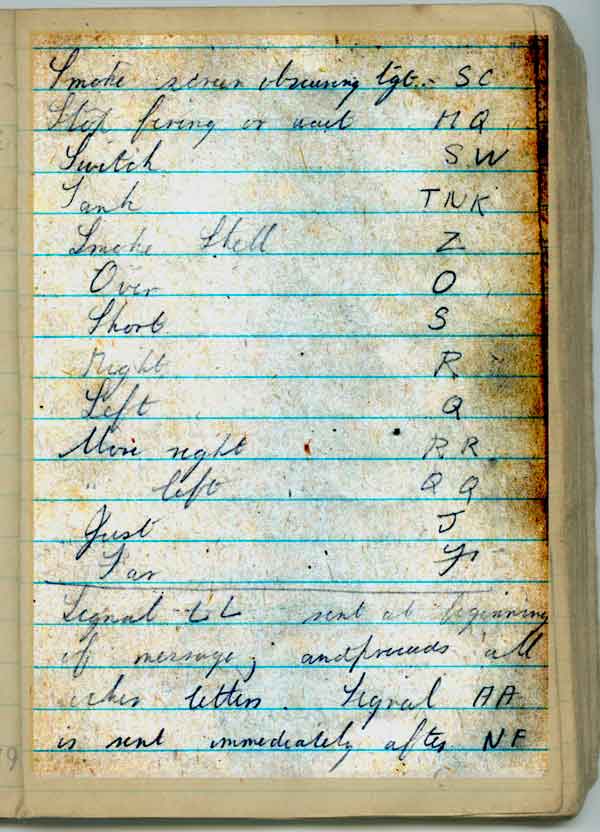 Smoke screen obscuring tgt. - SC
Stop firing or wait MQ
Switch SW
Tank TNK
Smoke Shell Z
Over O
Short S
Right R
Left Q
More right RR
" left QQ
Just J
Far F
Signal LL sent at beginning
of message, and preceeds all
other letters. Signal AA
is sent immediately after NF